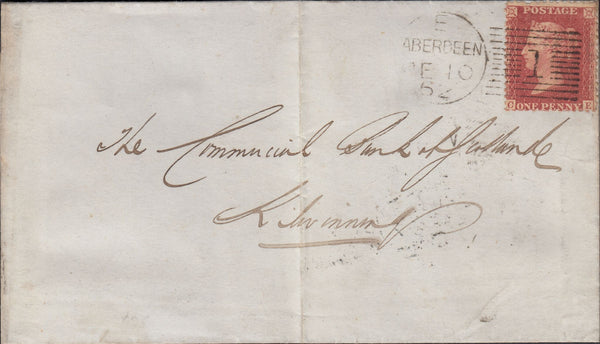 POSTAGE
ABERDEEN
1
E 10
62
ONE PENNY
The Commercial Bank of Scotland
Kilwinning